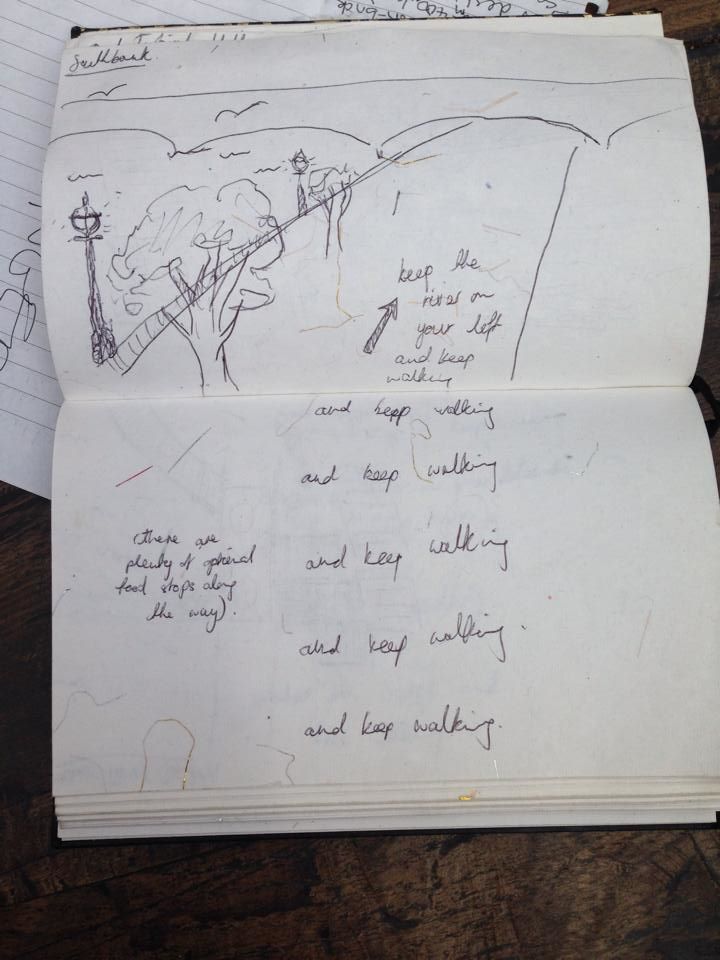 Southbank.
keep the
river on
your left
and keep
walking
and kepp walking
and keep walking
(there are
plenty of optional
food stops along
the way).
and keep walking
and keep walking.
and keep walking.